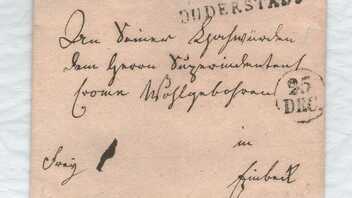 DUDERSTADT
An Seiner Hochwürden
dem Herrn Superindentent
Crome Wohlgebohren
25
DEC.
in
frey
Einbeck